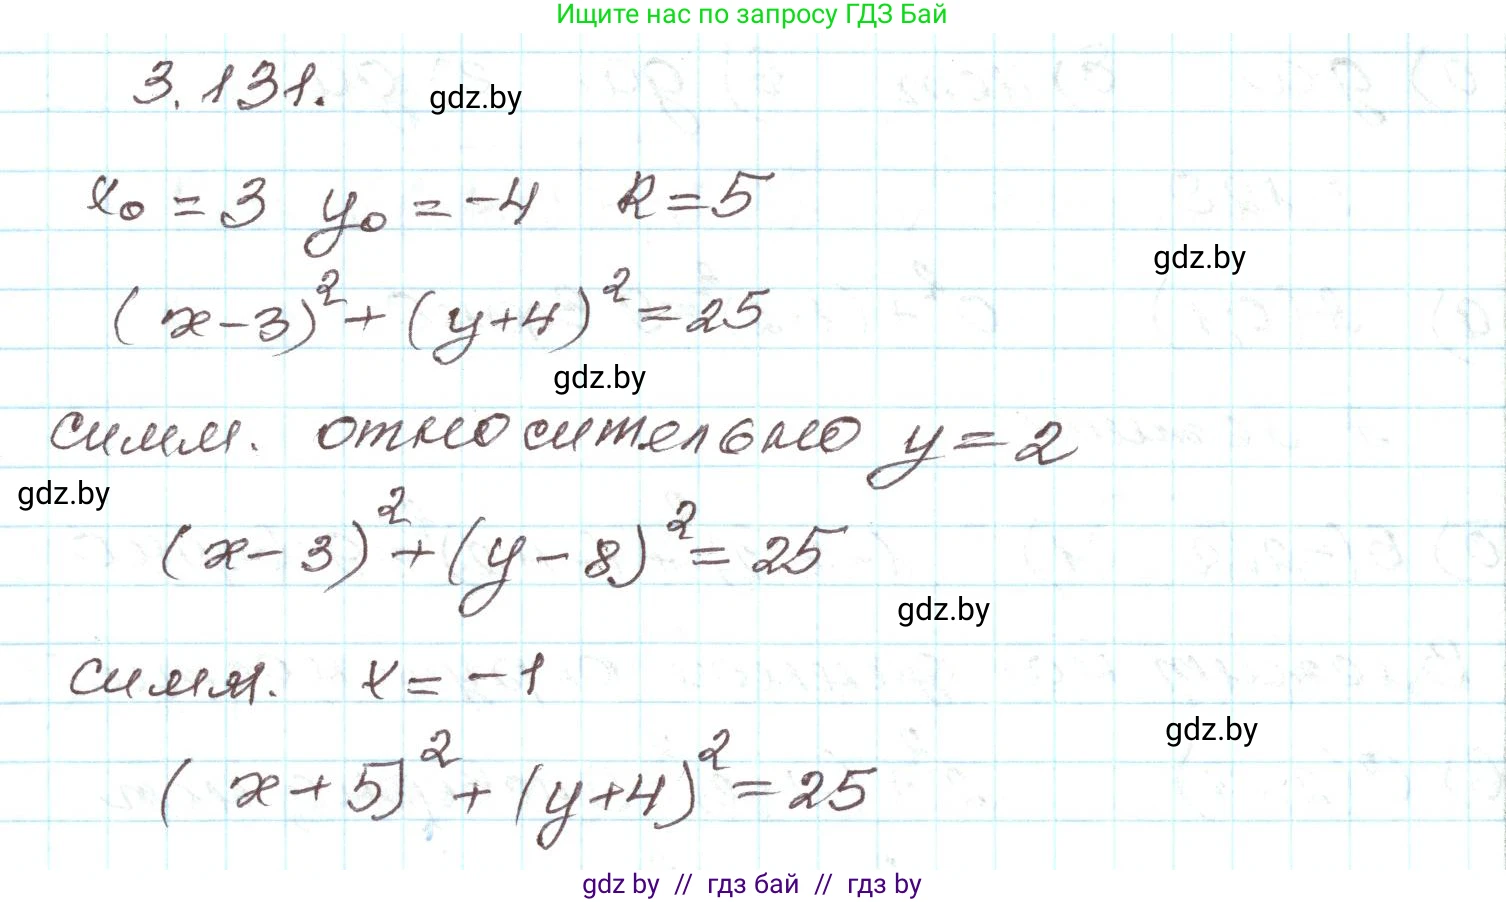 Ищите нас по запросу ГДЗ Бай
3.131.
gdz.by
x₀ = 3 y₀ = -4 R = 5
gdz.by
(x-3)² + (y+4)² = 25
gdz.by
симм. относительно y = 2
gdz.by
(x-3)² + (y-8)² = 25
gdz.by
симм. x = -1
gdz.by
(x+5)² + (y+4)² = 25
gdz by // гдз бай // гдз by